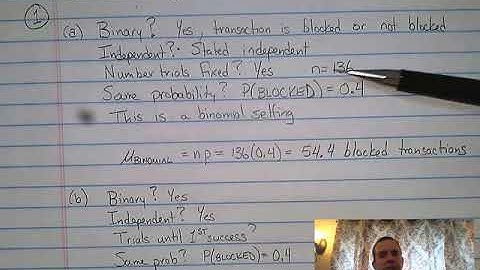 1
(a) Binary? Yes, transaction is blocked or not blocked
Independent? Stated independent
Number trials fixed? Yes n=136
Same probability? P(BLOCKED) = 0.4
This is a binomial setting
μBINOMIAL = np = 136(0.4) = 54.4 blocked transactions
(b) Binary? Yes
Independent? Yes
Trials until 1ST success?
Same prob? P(BLOCKED) = 0.4